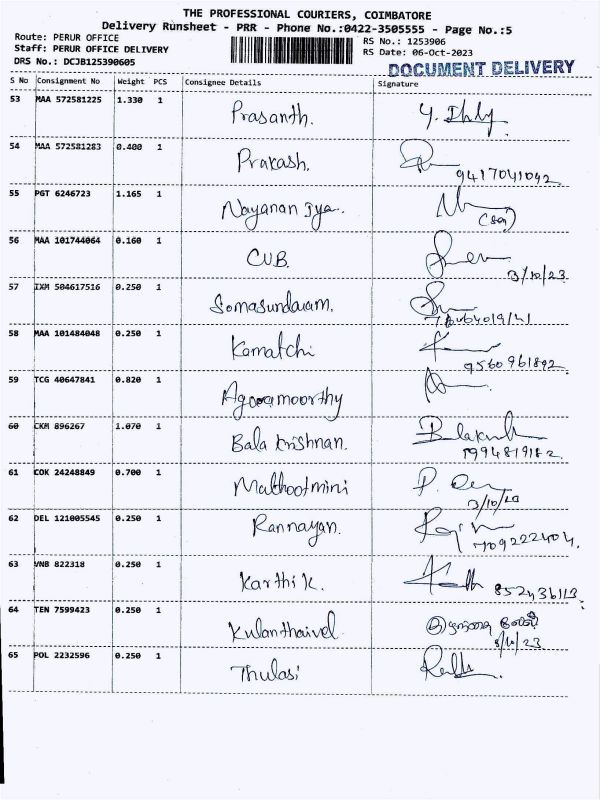 THE PROFESSIONAL COURIERS, COIMBATORE
Delivery Runsheet - PRR - Phone No.:0422-3505555 - Page No.:5
Route: PERUR OFFICE
RS No.: 1253906
Staff: PERUR OFFICE DELIVERY
RS Date: 06-Oct-2023
DRS No.: DCJB125390605
DOCUMENT DELIVERY
S No Consignment No Weight PCS Consignee Details Signature
53 MAA 572581225 1.330 1 Prasanth.
54 MAA 572581283 0.400 1 Prakash.
9417041092
55 PGT 6246723 1.165 1 Nayanan Iya.
(son)
56 MAA 101744064 0.160 1 CUB.
3/10/23
57 IXM 504617516 0.250 1 Somasundaram.
58 MAA 101484048 0.250 1 Kamatchi
9560961892
59 TCG 40647841 0.820 1 Agoramoorthy
60 CKM 896267 1.070 1 Bala Krishnan.
61 COK 24248849 0.700 1 Muthootmini
62 DEL 121005545 0.250 1 Rannayan.
7092222404.
63 VNB 822318 0.250 1 Karthik.
64 TEN 7599423 0.250 1 Kulanthaivel
65 POL 2232596 0.250 1 Thulasi